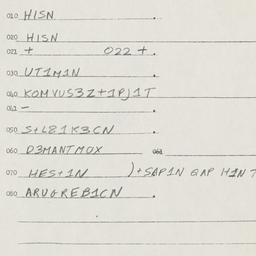 010 HISN .
020 HISN
021 + 022 + .
030 UT1M1N
040 KOMVUS3Z+1PJ1T
041 - .
050 S+L81K3CN .
060 D3MANTMOX 061
070 HES+1N )+SAP1N GAP H1N
080 ARUGREB1CN .